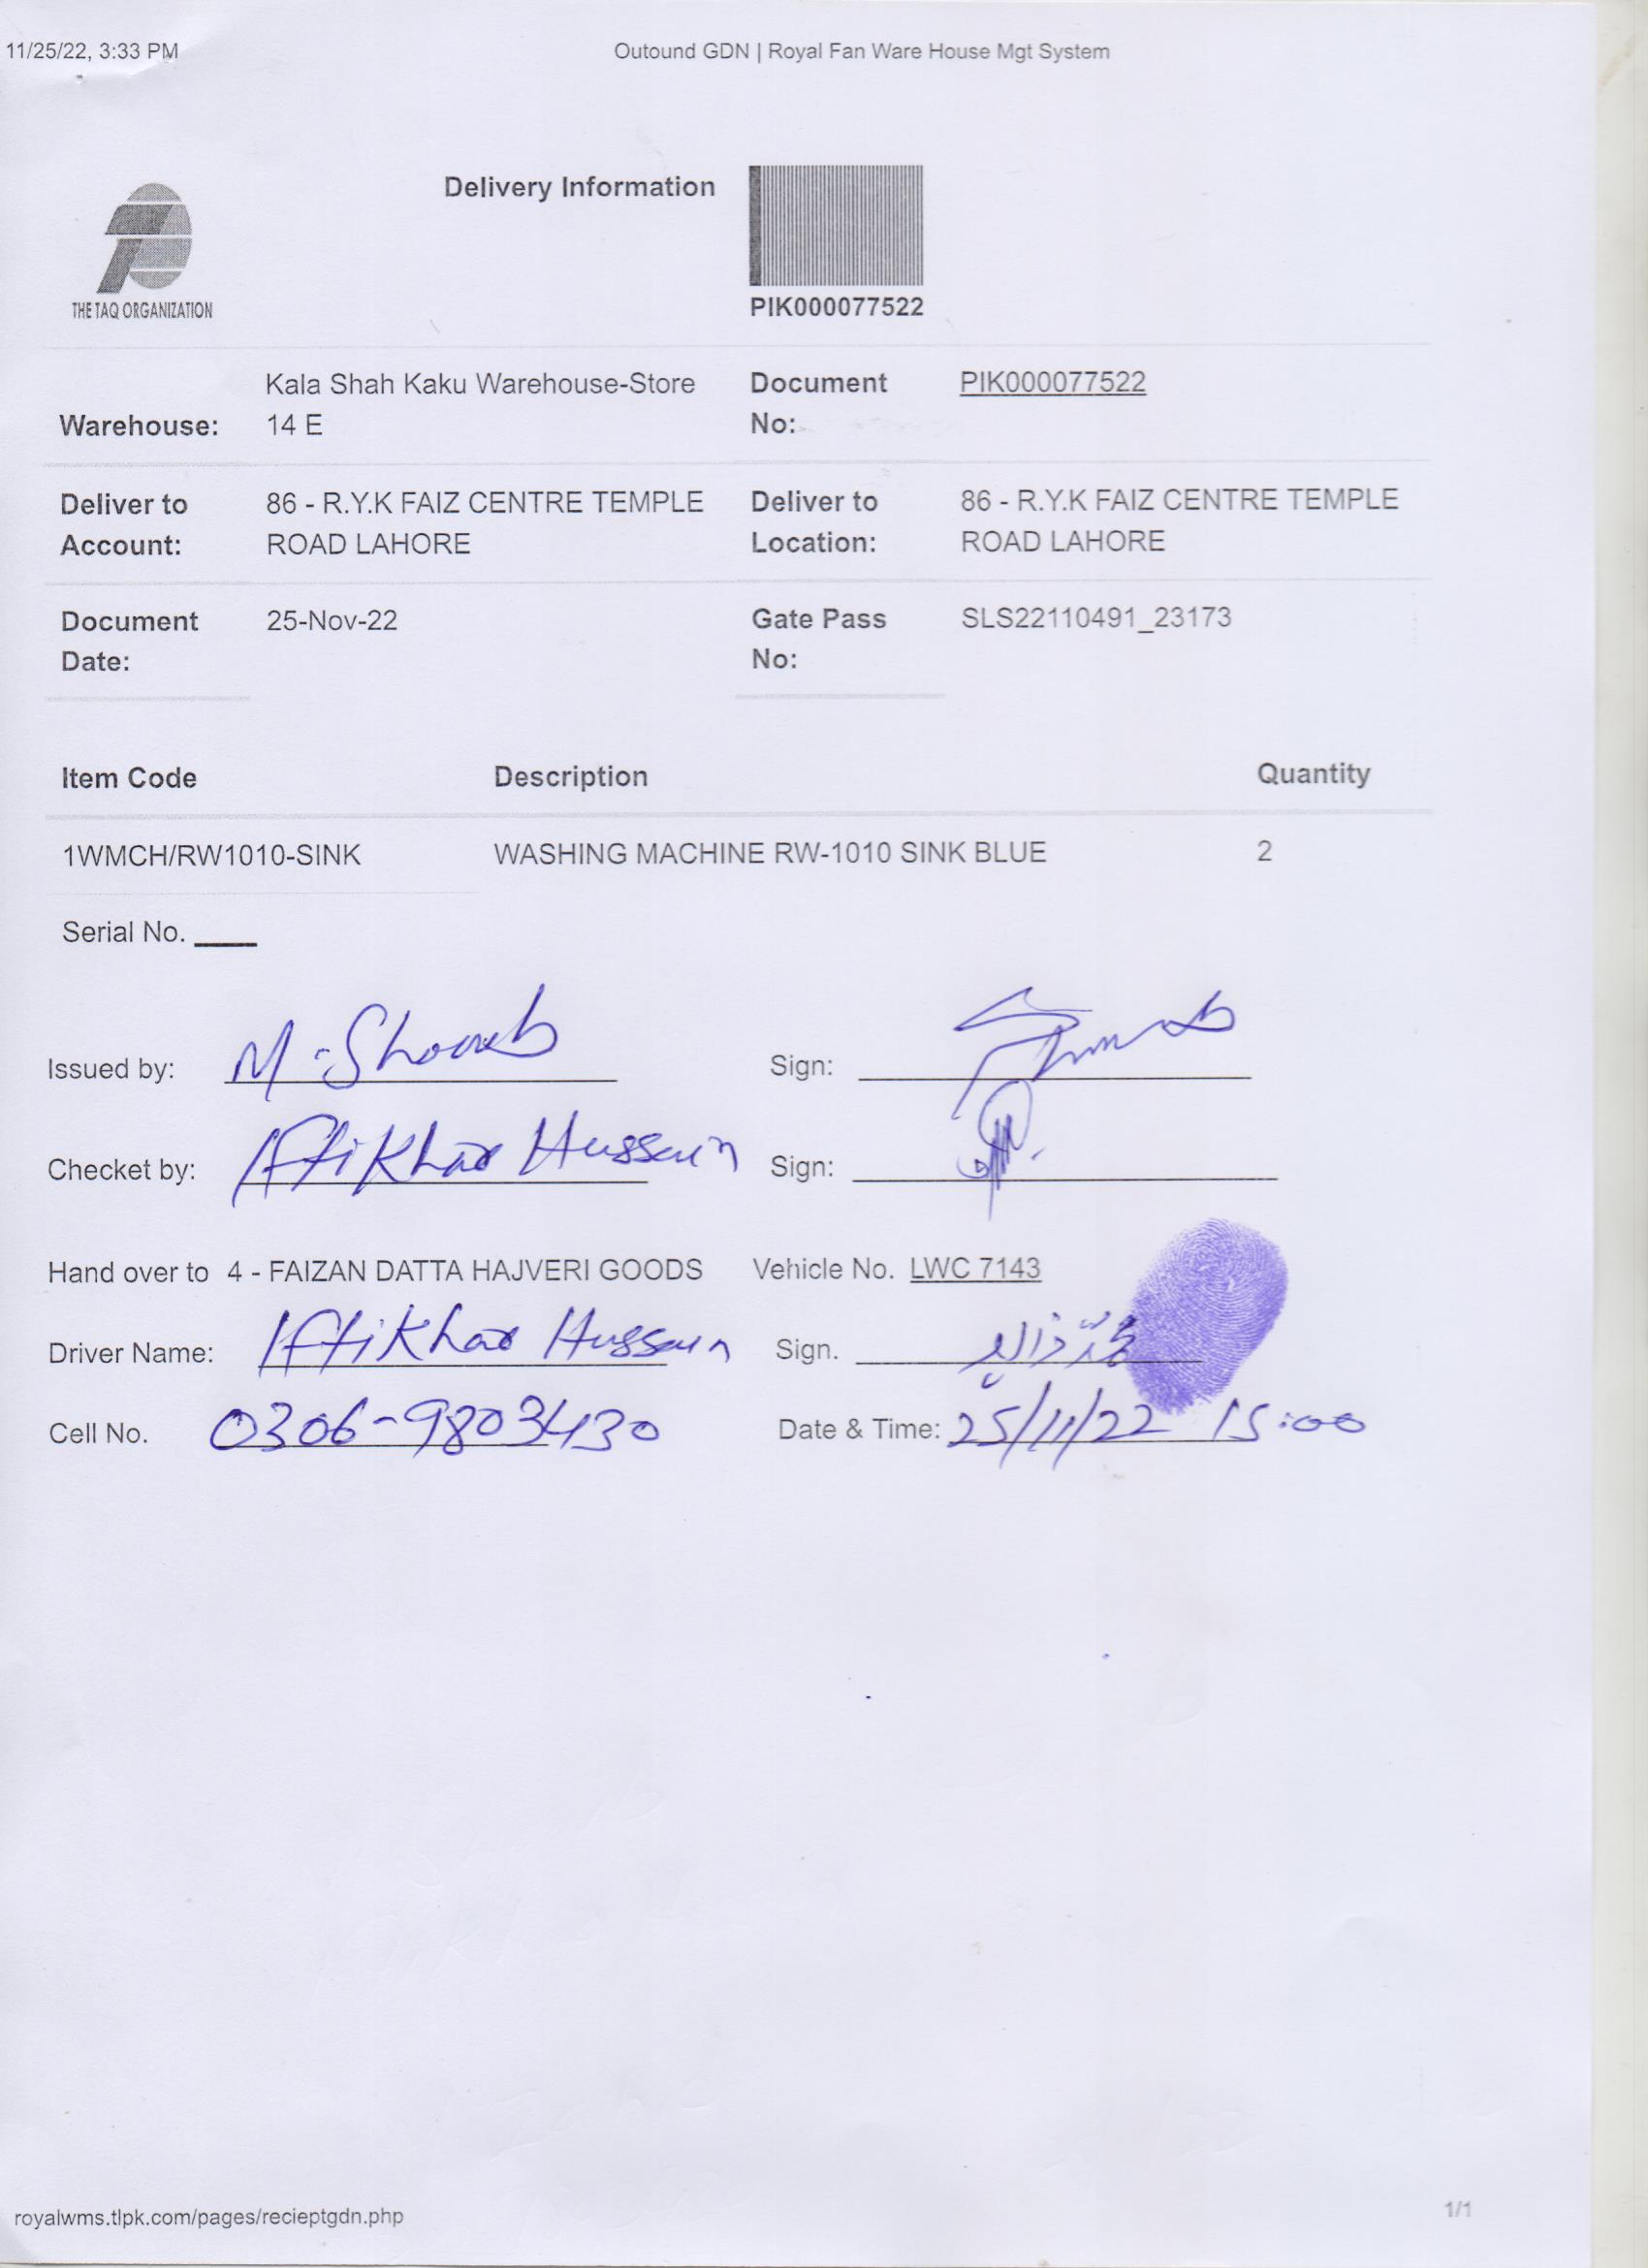 11/25/22, 3:33 PM Outound GDN | Royal Fan Ware House Mgt System
Delivery Information
THE TAQ ORGANIZATION
PIK000077522
Warehouse: Kala Shah Kaku Warehouse-Store 14 E Document No: PIK000077522
Deliver to Account: 86 - R.Y.K FAIZ CENTRE TEMPLE ROAD LAHORE Deliver to Location: 86 - R.Y.K FAIZ CENTRE TEMPLE ROAD LAHORE
Document Date: 25-Nov-22 Gate Pass No: SLS22110491_23173
Item Code Description Quantity
1WMCH/RW1010-SINK WASHING MACHINE RW-1010 SINK BLUE 2
Serial No.
Issued by: M-Shoaib Sign:
Checket by: Iftikhar Hussain Sign:
Hand over to 4 - FAIZAN DATTA HAJVERI GOODS Vehicle No. LWC 7143
Driver Name: Iftikhar Hussain Sign.
Cell No. 0306-9803430 Date & Time: 25/11/22 15:00
royalwms.tlpk.com/pages/recieptgdn.php 1/1